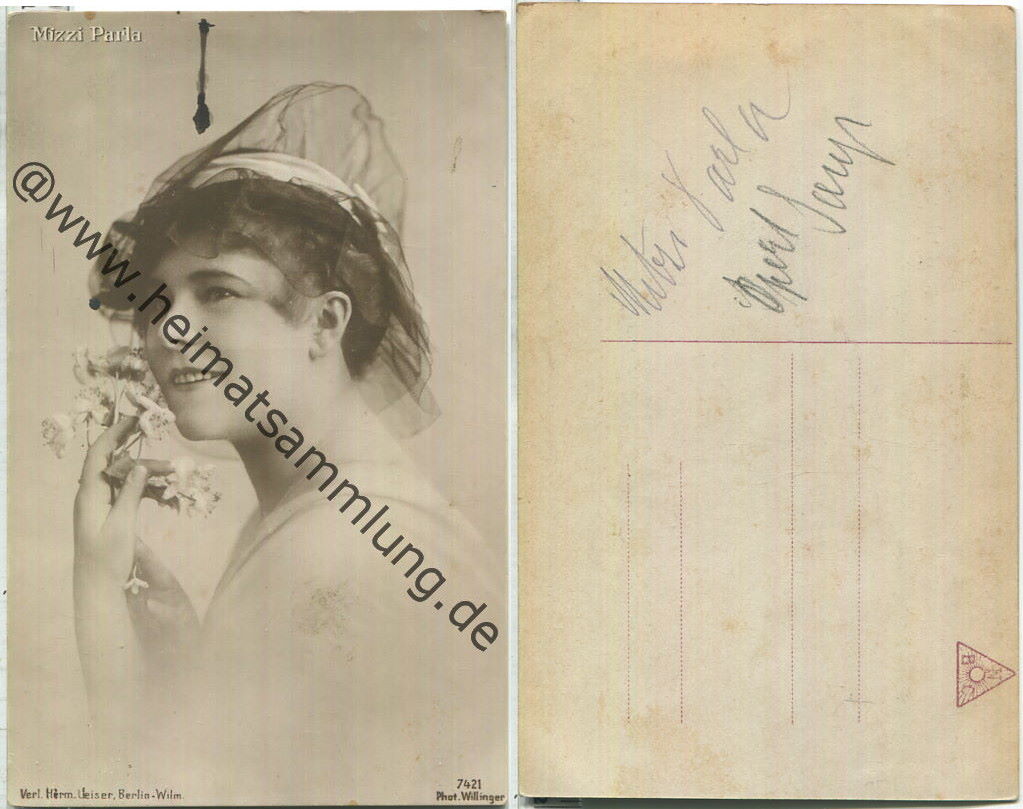 Mizzi Parla
@www.heimatsammlung.de
Verl. Herm. Leiser, Berlin-Wilm.
7421
Phot. Willinger
Parla
N
B C